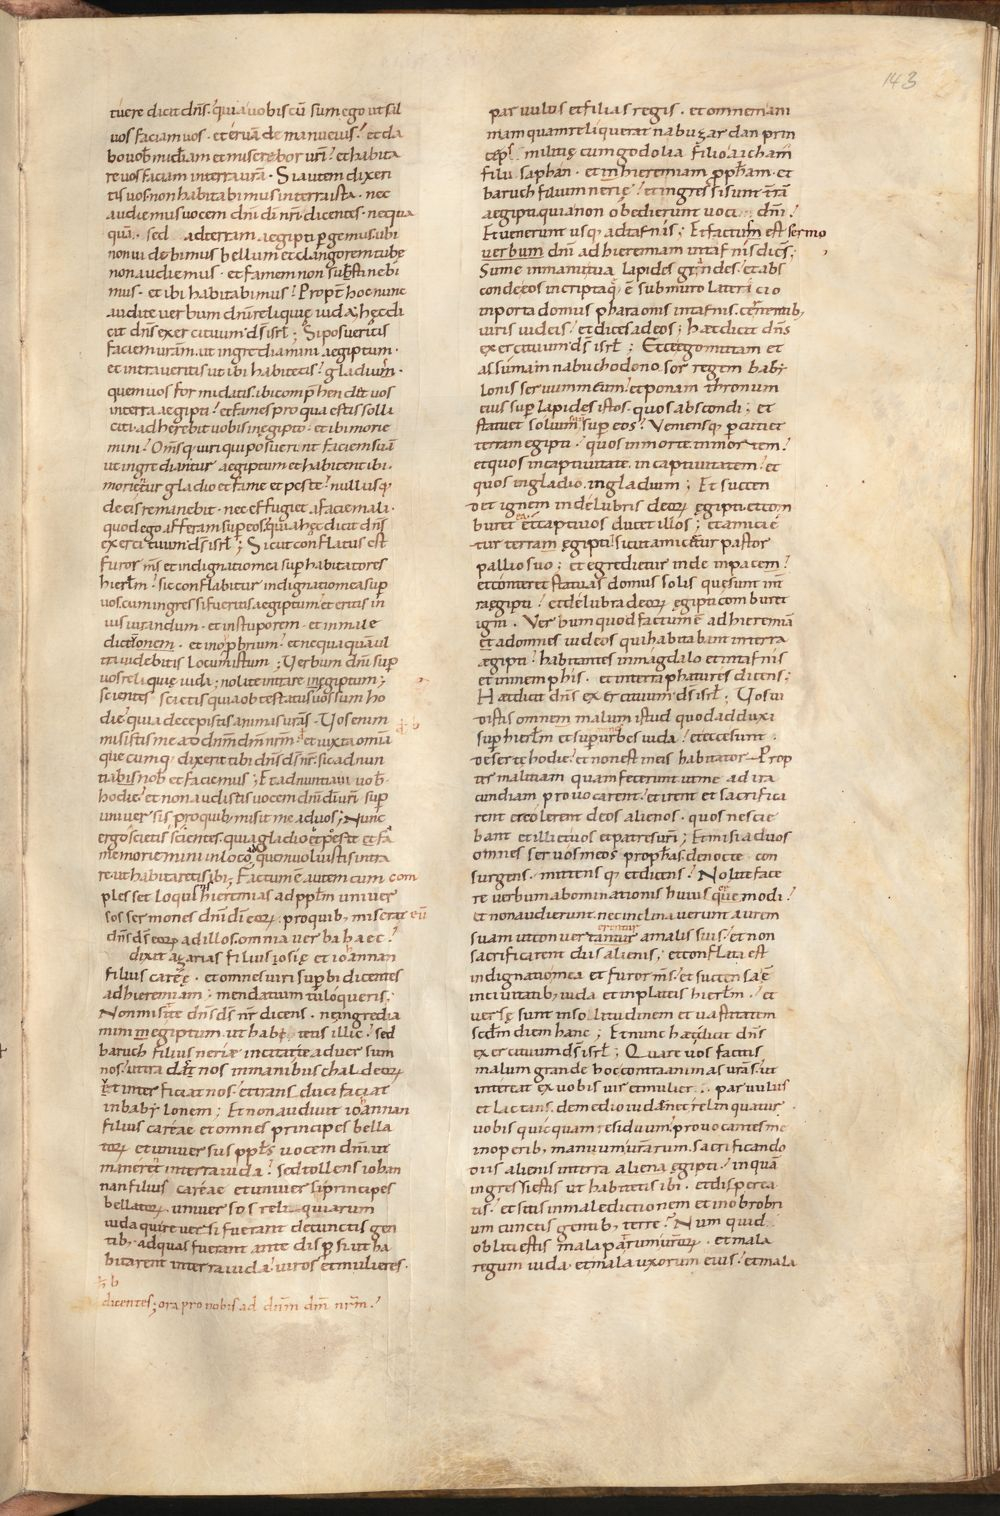 143
tuere dicit dn̄s· quia uobiscū sum ego ut sal
uos faciam uos· et eruā de manu eius? et da
bo uob̄ mićdiam et miserebor ur̄i? et habita
re uos faciam in terra ur̄a· Si autem dixeri
tis uos non habitabimus in terra ista· nec
audiemus uocem dn̄i dī nr̄i dicentes· nequa
quā· sed ad terram aegipti ꝑgemus· ubi
non uidebimus bellum et clangorem tubę
non audiemus· et famem non sustinebi
mus· et ibi habitabimus? Propt̄ hoc nunc
audite uerbum dn̄i reliquię iuda· hęc di
cit dn̄s exercituum d̄s isrl̄; Si posueritis
faciem ur̄am· ut ingrediamini aegiptum·
et intraueritis ut ibi habitetis? gladium
quem uos formidatis· ibi comp̄hendet uos
in terra aegipti? et fames pro qua estis solli
citi adherebit uobis in ęgipto· et ibi morie
mini? Om̄sq· uiri qui posuerunt faciem suā
ut ingrediantur aegiptum et habitent ibi·
morientur gladio et fame et peste? nullusq·
de eis remanebit· nec effugiet a facie mali·
quod ego afferam sup̄ eos· quia hęc dicit dn̄s
exercituum d̄s isrl̄; Sicut conflatus est
furor m̄s et indignatio mea sup̄ habitatores
hierl̄m? sic conflabitur indignatio mea sup̄
uos cum ingressi fueritis aegiptum· et eritis in
iusiurandum· et in stuporem· et in male
dictionem· et in opprobrium? et nequaquā ul
tra uidebitis locum istum; Uerbum dn̄i sup̄
uos reliquię iuda; nolite intrare in ęgiptum;
scientes scietis quia obtestatus uos sum ho
die· quia decepistis animas ur̄as· Uos enim
misistis me ad dn̄m dm̄ nr̄m· et iuxta omia
quecumq· dixerit tibi dn̄s d̄s nr̄· sic adnun
tiabis nob̄ et faciemus; Et adnuntiaui uob̄·
hodie? et non audistis uocem dn̄i dī ur̄i sup̄
uniuersis pro quib; misit me ad uos; Nunc
ergo scietis scientes· quia gladio et peste et fa
me moriemini in loco quem uoluistis intra
re ut habitaretis ibi; Factum ē autem cum com
plesset loqui hieremias ad pp̄lm uniuer
sos sermones dn̄i dī eorꝝ· pro quib; miserat eū
dn̄s d̄s eorꝝ ad illos· omnia uerba haec?
dixit azarias filius iosię et iohannan
filius careę· et omnes uiri superbi dicentes
ad hieremiam; mendatium tu loqueris·
Non misit te dn̄s d̄s nr̄ dicens· ne ingredia
mini in egiptum ut habitetis illic? sed
baruch filius neriæ incitat te aduersum
nos· ut tradat nos in manibus chaldeorꝝ
Et interficiat nos· et transduci faciat
in babylonem; Et non audiuit iohannan
filius careae et omnes principes bella
torꝝ et uniuersus pp̄ls uocem dn̄i ut
manerent in terra iuda? sed tollens iohan
nan filius careae et uniuersi principes
bellatorꝝ uniuersos reliquiarum
iuda qui reuersi fuerant de cunctis gen
tib; ad quas fuerant ante disp̄si ut ha
bitarent in terra iuda· uiros et mulieres·
dicentes; ora pro nobis ad dn̄m dm̄ nr̄m?
paruulos et filias regis· et omnem ani
mam quam reliquerat nabuzardan prin
ceps militię cum godolia filio aicham
filii saphan· et in hieremiam ꝓph̄am· et
baruch filium nerię? et ingressi sunt t̄rā
aegipti· quia non obedierunt uoci dn̄i?
Et uenerunt usq· ad tafnis; Et factum est sermo
uerbum dn̄i ad hieremiam in tafnis dic̄s;
Sume in manu tua lapides grandes· et abs
conde eos in cripta q̄ ē sub muro latericio
in porta domus pharaonis in tafnis· cernentib;
uiris iudeis? et dices ad eos; hæc dicit dn̄s
exercituum d̄s isrl̄; Ecce ego mittam et
assumam nabuchodonosor regem baby
lonis seruum meum? et ponam thronum
eius sup̄ lapides istos· quos abscondi; et
statuet solium sup̄ eos? Veniensq· ꝑcutiet
terram egipti? quos in morte· in mortem?
et quos in captiuitate· in captiuitatem? et
quos in gladio· in gladium; Et succen
det ignem in delubris deorꝝ ęgipti· et com
buret et captiuos ducet illos; et amicie
tur terram ęgipti· sicut amicitur pastor
pallio suo; et egredietur inde in pacem?
et conteret statuas domus solis que sunt in t̄
ra ęgipti? et delubra deorꝝ ęgipti comburet
igni· Verbum quod factum ē ad hieremiā
et ad omnes iudeos qui habitabant in terra
ægipti? habitantes in magdalo et in tafnis
et in memphis· et in terra phatures dicens;
Haec dicit dn̄s exercituum d̄s isrl̄; Uos ui
distis omnem malum istud quod adduxi
sup̄ hierl̄m et sup̄ urbes iuda? et ecce sunt
desertę hodie? et non est in eis habitator Prop
ter malitiam quam fecerunt ut me ad ira
cundiam prouocarent? et irent et sacrifica
rent et colerent deos alienos· quos nescie
bant et illi et uos et patres ur̄i; Et misi ad uos
omnes seruos meos proph̄as· de nocte con
surgens· mittensq· et dicens? Nolite face
re uerbum abominationis huiuscemodi?
et non audierunt· nec inclinauerunt aurem
suam ut conuertantur a malis suis· et non
sacrificarent diis alienis; et conflata est
indignatio mea et furor m̄s· et succensa ē
in ciuitatib; iuda et in plateis hierl̄m? et
uersę sunt in sollitudinem et uastitatem
scdm̄ diem hanc; Et nunc hæc dicit dn̄s
exercituum d̄s isrl̄; Quare uos facitis
malum grande hoc contra animas ur̄as· ut
intereat ex uobis uir et mulier· paruulus
et lactans· de medio iudę nec relinquatur
uobis quicquam residuum? prouocantes me
in operib; manuum ur̄arum· sacrificando
diis alienis in terra aliena ęgipti? in quā
ingressi estis ut habitetis ibi· et disperea
tis? et sitis in maledictionem et in obrobri
um cunctis gentib; terre? Numquid
obliti estis mala patrum ur̄orꝝ· et mala
regum iuda et mala uxorum eius? et mala